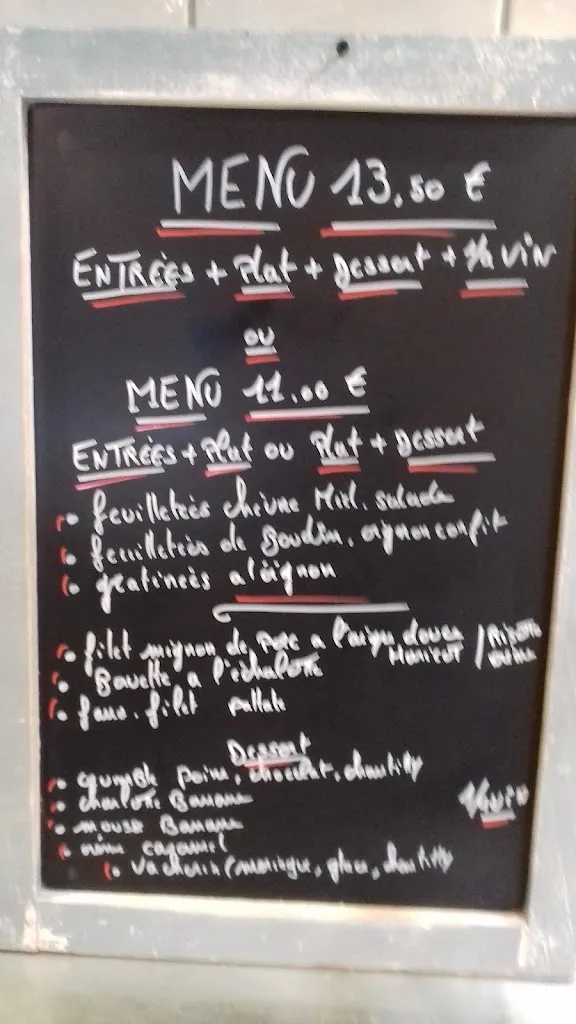 MENU 13,50 €
ENTRÉES + Plat + Dessert + 1/4 VIN
OU
MENU 11,00 €
ENTRÉES + Plat ou Plat + Dessert
feuilletées chèvre Miel, salade
feuilletées de Boudin, oignon confit
gratinées a l'oignon
filet mignon de porc a l'aigre douce / Risotto
Haricot crème
Bavette a l'échalotte
faux-filet
Dessert
poire, chocolat, chantilly
charlotte Banane
mousse Banane
1/4 vin
caramel
vacherin (meringue, glace, chantilly